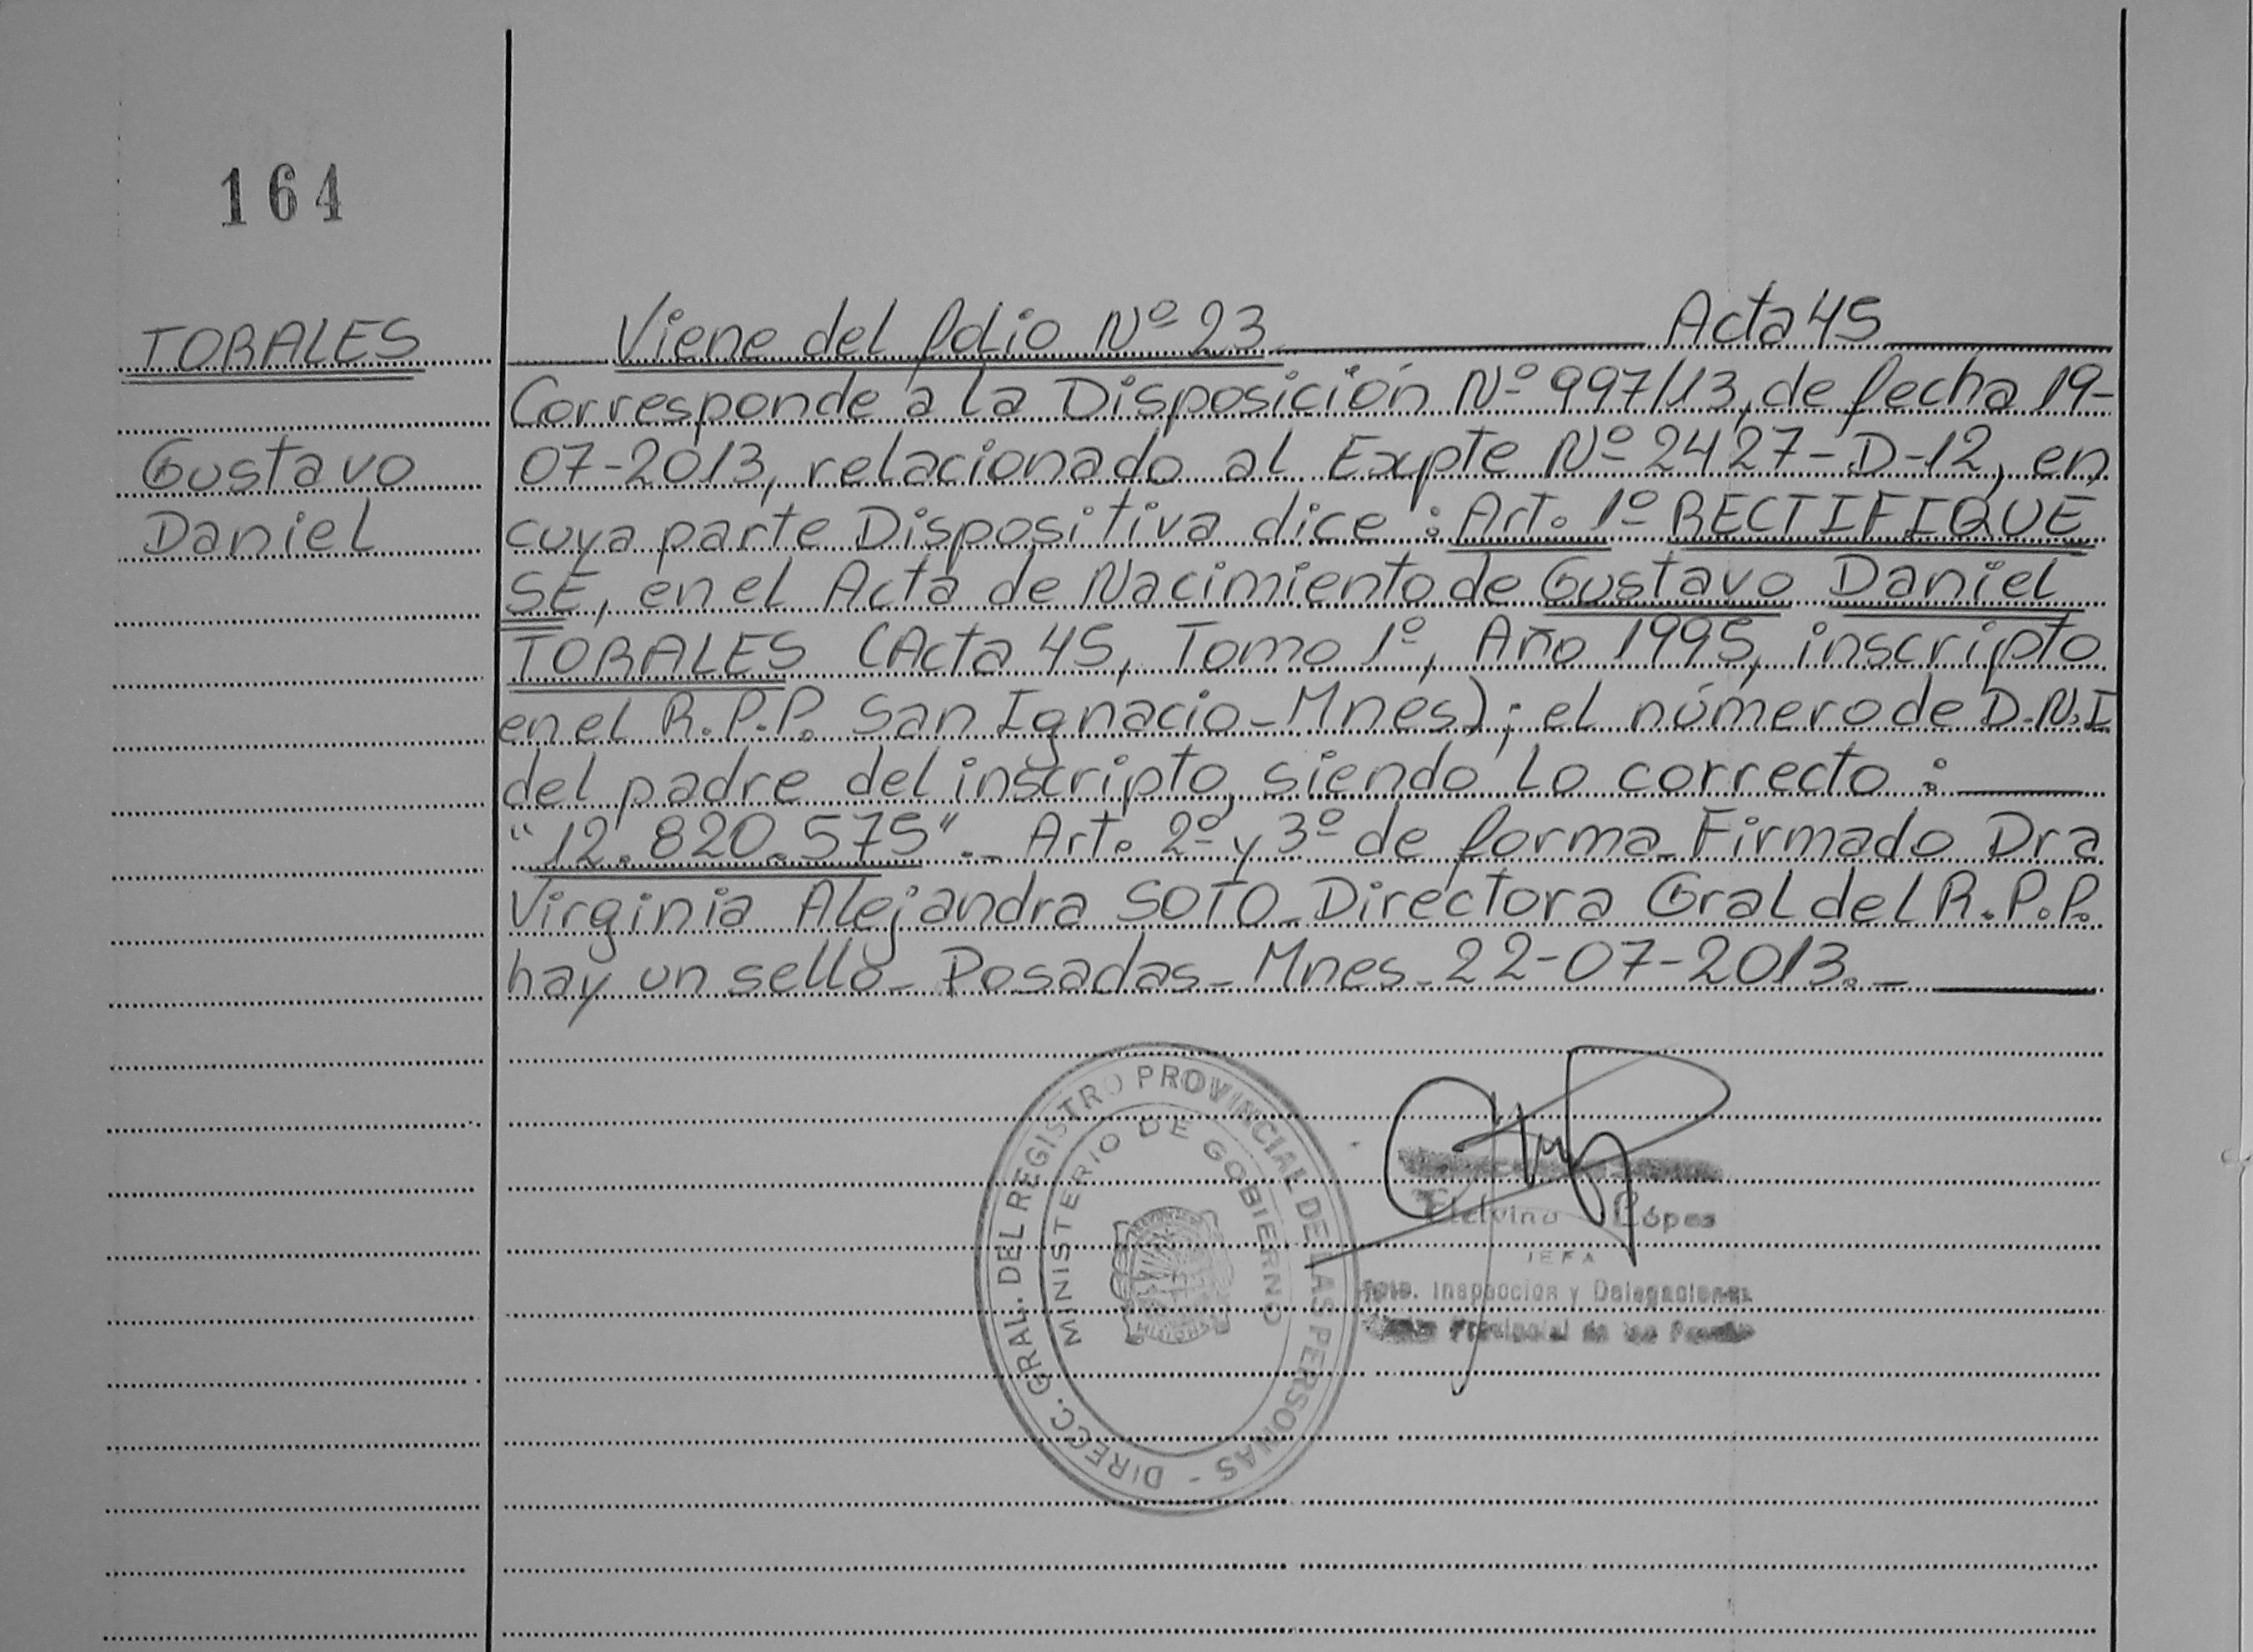 164
TORALES
Gustavo
Daniel
Viene del folio Nº 23 Acta 45
Corresponde a la Disposición Nº 997/13, de fecha 19-
07-2013, relacionado al Expte Nº 2427-D-12, en
cuya parte Dispositiva dice: Art. 1º RECTIFIQUE
SE, en el Acta de Nacimiento de Gustavo Daniel
TORALES (Acta 45, Tomo 1º, Año 1995, inscripto
en el R.P.P. San Ignacio-Mnes); el número de D.N.I
del padre del inscripto, siendo lo correcto:
"12.820.575".- Art. 2º y 3º de forma-Firmado Dra
Virginia Alejandra SOTO-Directora Gral del R.P.P.
hay un sello-Posadas-Mnes-22-07-2013.-
DIRECC. GRAL. DEL REGISTRO PROVINCIAL DE LAS PERSONAS -
MINISTERIO DE GOBIERNO
López
JEFA
Dpto. Inspección y Delegaciones
Provincial de las